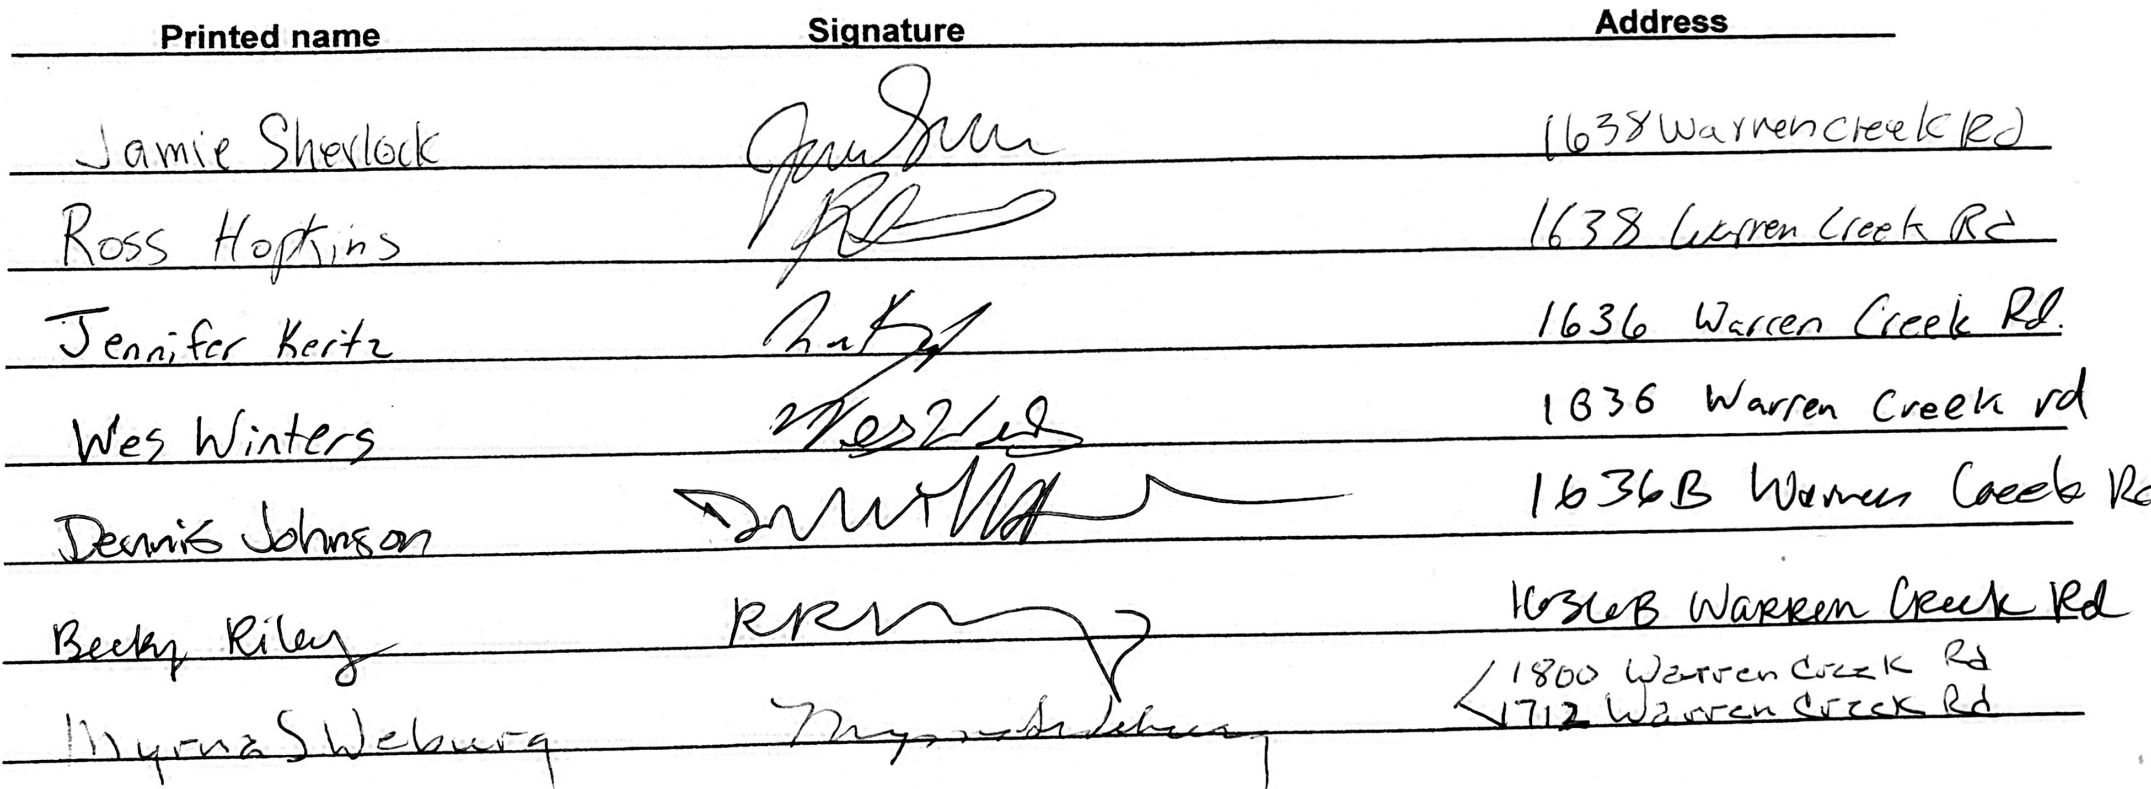 Printed name Signature Address
Jamie Sherlock 1638 Warren Creek Rd
Ross Hopkins 1638 Warren Creek Rd
Jennifer Keitz 1636 Warren Creek Rd.
Wes Winters Wes 1636 Warren Creek rd
Dennis Johnson 1636B Warren Creek Rd
Becky Riley 1636B Warren Creek Rd
1800 Warren Creek Rd
Myrna S Weburg 1712 Warren Creek Rd